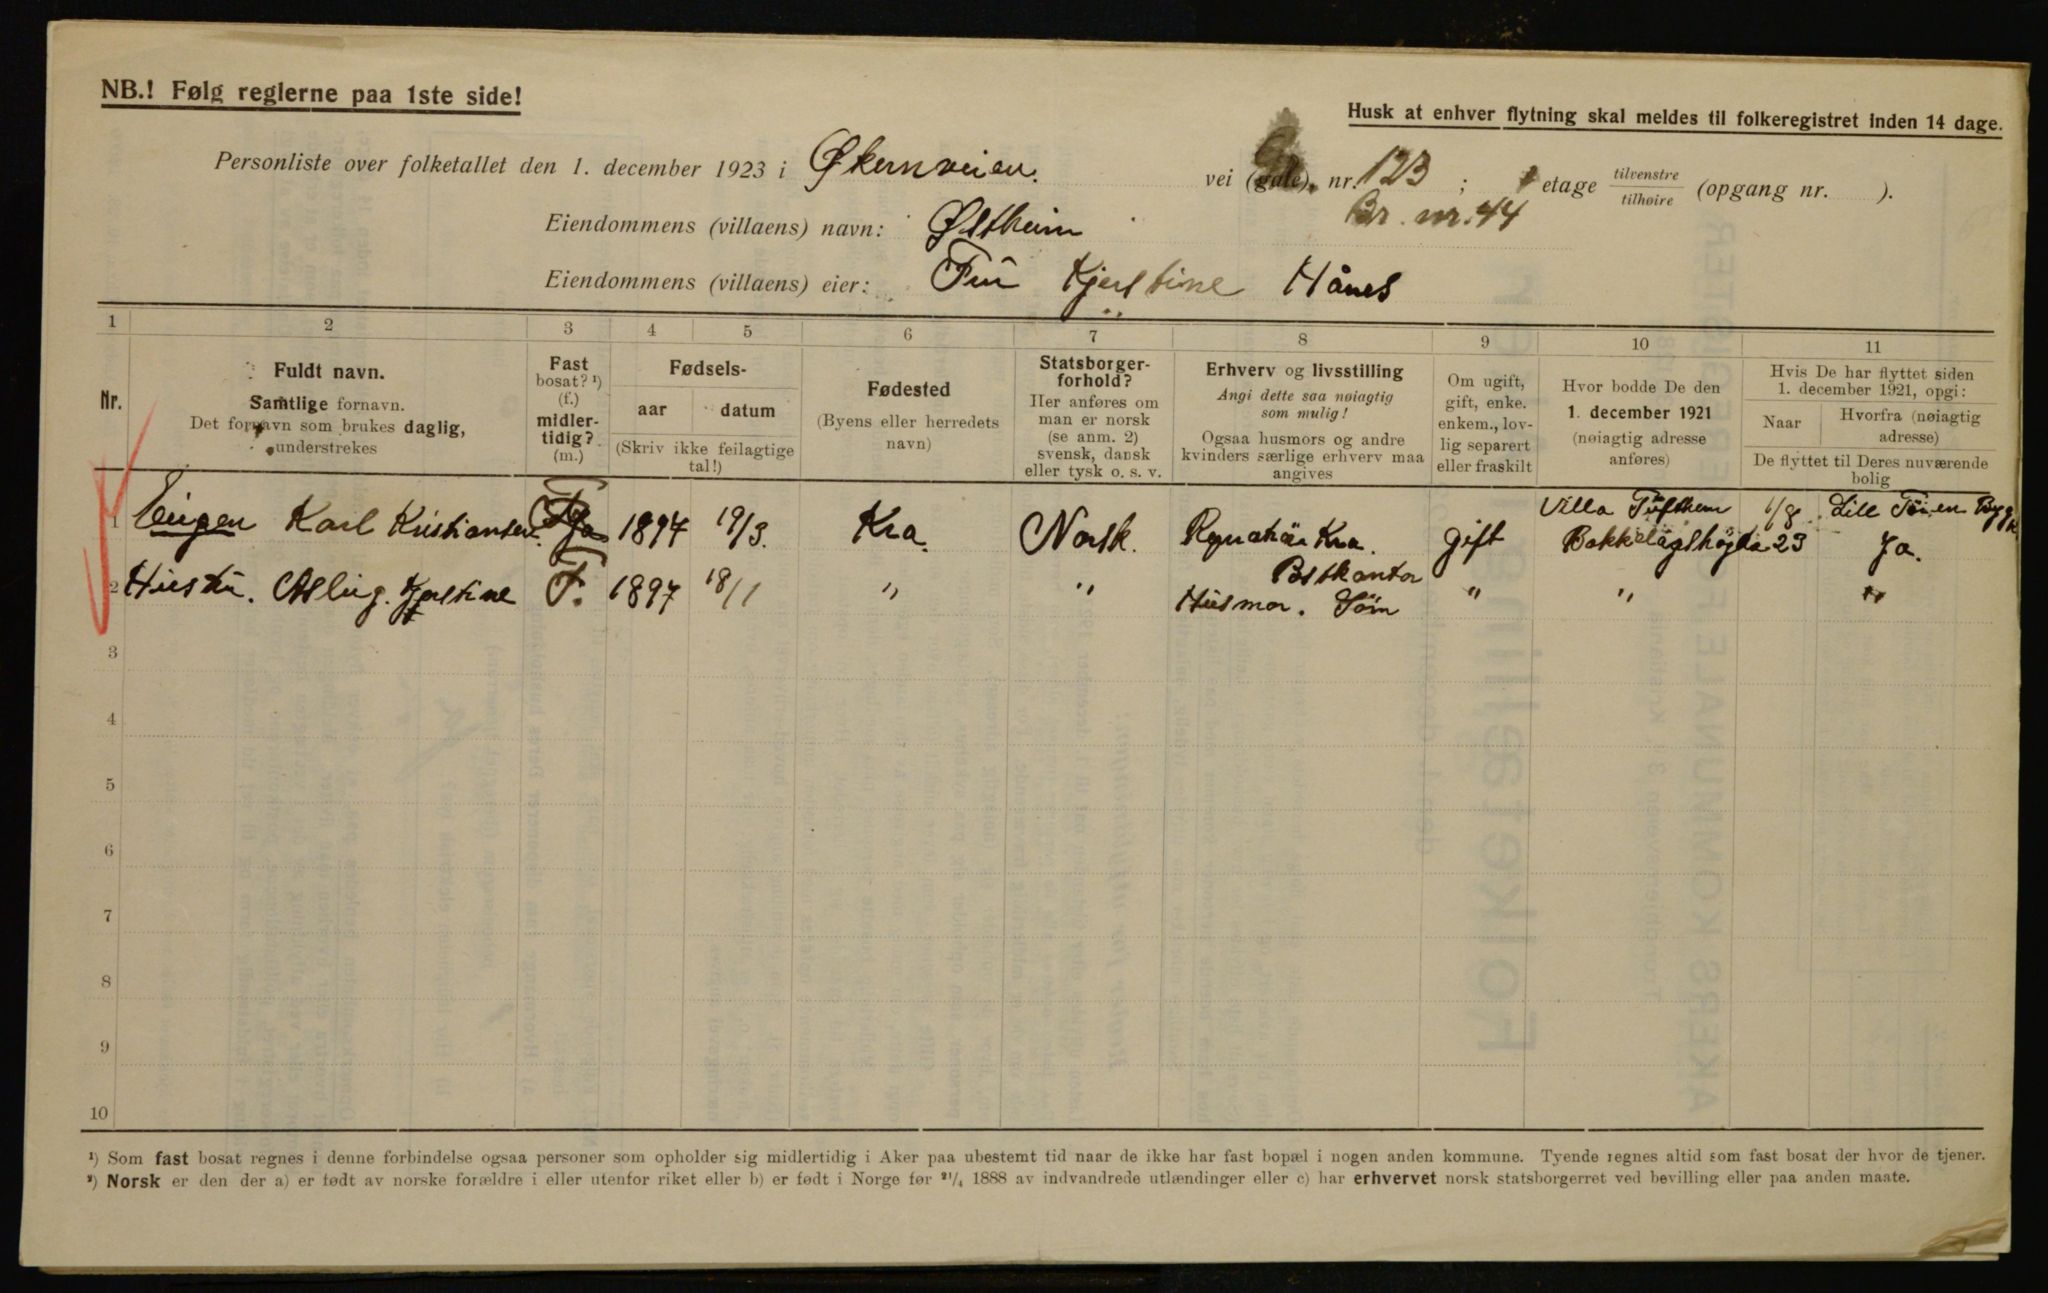 NB.! Følg reglerne paa 1ste side!
Husk at enhver flytning skal meldes til folkeregistret inden 14 dage.
Personliste over folketallet den 1. december 1923 i Økernveien. vei (gate), nr. 123 ; etage tilvenstre tilhøire (opgang nr. ).
Eiendommens (villaens) navn: Østheim Br. nr. 44
Eiendommens (villaens) eier: Frü Kjerstine Hånes
1 2 3 4 5 6 7 8 9 10 11
Nr.
Fuldt navn.
Samtlige fornavn.
Det fornavn som brukes daglig,
understrekes
Fast
bosat? ¹)
(f.)
midler-
tidig?
(m.)
Fødsels-
aar datum
(Skriv ikke feilagtige
tal!)
Fødested
(Byens eller herredets
navn)
Statsborger-
forhold?
Her anføres om
man er norsk
(se anm. 2)
svensk, dansk
eller tysk o. s. v.
Erhverv og livsstilling
Angi dette saa nøiagtig
som mulig!
Ogsaa husmors og andre
kvinders særlige erhverv maa
angives
Om ugift,
gift, enke.
enkem., lov-
lig separert
eller fraskilt
Hvor bodde De den
1. december 1921
(nøiagtig adresse
anføres)
Hvis De har flyttet siden
1. december 1921, opgi:
Naar
Hvorfra (nøiagtig
adresse)
De flyttet til Deres nuværende
bolig
Villa 1/8 Lille Tøien
1 Eugen Karl Kristiansen. F 1894 19/3. Kra. Norsk. Kra. gift 23 Ja.
Postkontor
2 Hüstrü. Aslüg. Kjerstine F. 1897 18/1 " " Hüsmor. " " "
3
4
5
6
7
8
9
10
¹) Som fast bosat regnes i denne forbindelse ogsaa personer som opholder sig midlertidig i Aker paa ubestemt tid naar de ikke har fast bopæl i nogen anden kommune. Tyende regnes altid som fast bosat der hvor de tjener.
²) Norsk er den der a) er født av norske forældre i eller utenfor riket eller b) er født i Norge før ²¹/₄ 1888 av indvandrede utlændinger eller c) har erhvervet norsk statsborgerret ved bevilling eller paa anden maate.